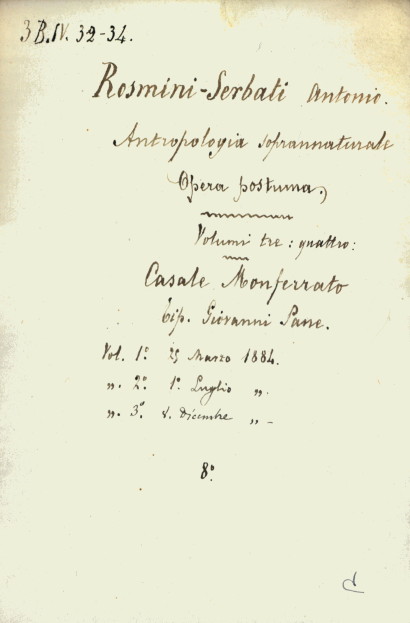 3 B. IV. 32-34.
Rosmini-Serbati Antonio.
Antropologia soprannaturale
Opera postuma.)
Volumi tre: quattro:
Casale Monferrato
Tip. Giovanni Pane.
Vol. 1º 25 Marzo 1884.
„. 2º. 1º. Luglio „.
„. 3º 8. Dicembre „ -
8º